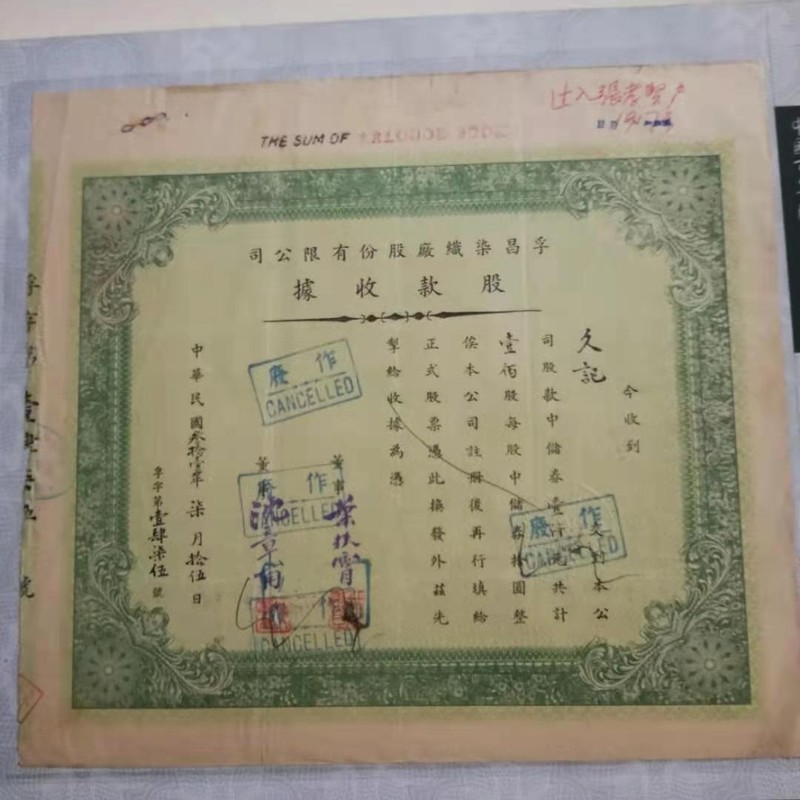 THE SUM OF
孚昌染織廠股份有限公司
股款收據
今收到
久記
交到本公
司股款中儲券壹仟元共計
壹佰股每股中儲券拾圓整
俟本公司註册後再行填給
正式股票憑此換發外茲先
掣給收據為憑
董事
葉扶霄
董
作廢
CANCELLED
作廢
CANCELLED
作廢
CANCELLED
作
CANCELLED
中華民國叁拾壹年柒月拾伍日
孚字第壹肆柒伍號